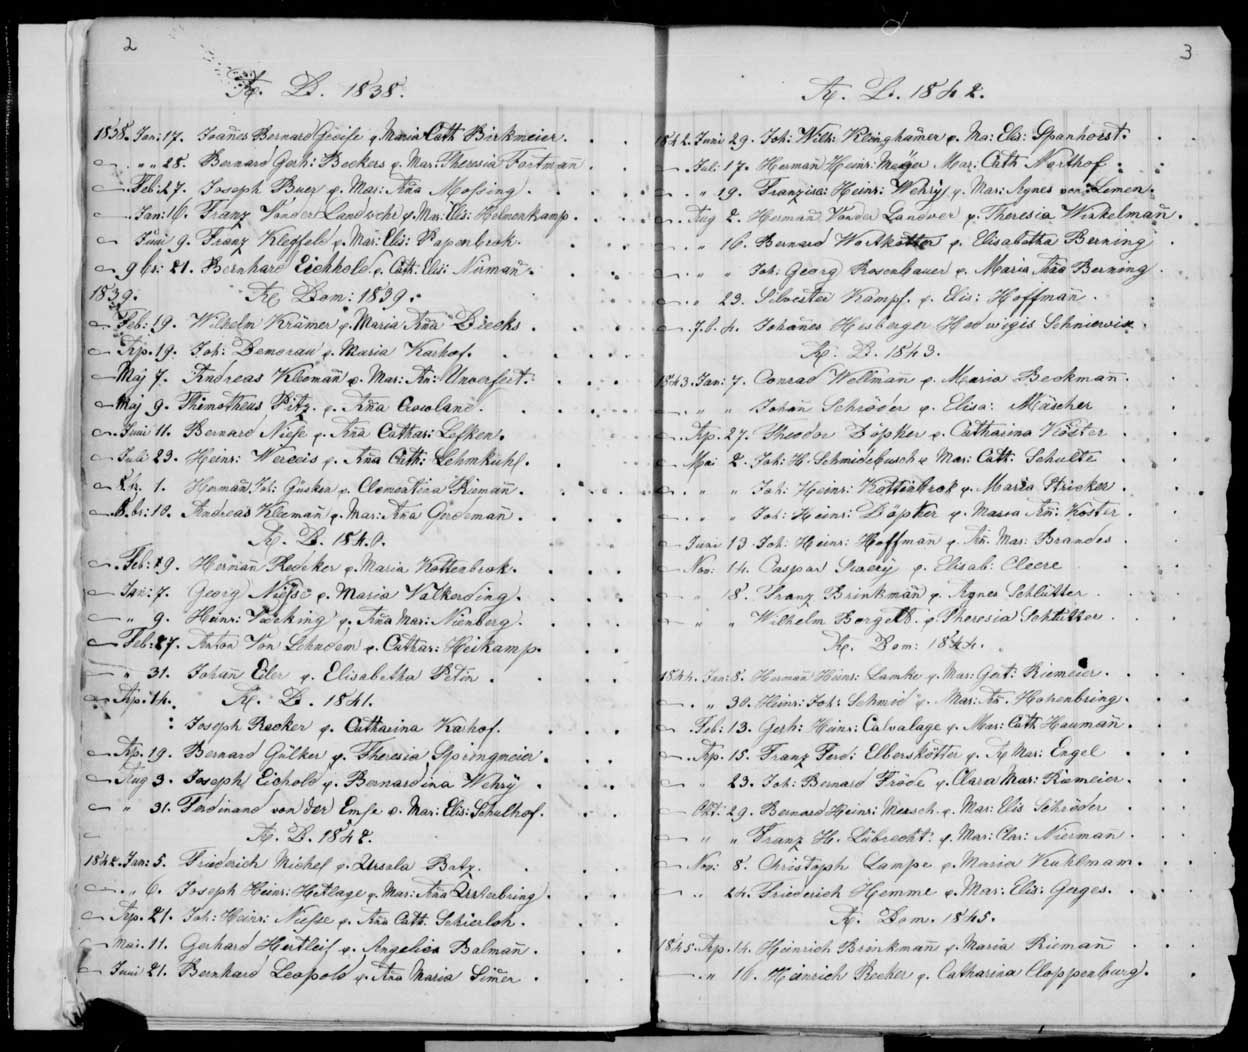 2
A. D. 1838.
1838. Jan: 17. Joañes Bernard Greise & Maria Cath Birkmeier.
" " 28. Bernard Gerh: Beckers & Mar: Theresia Fortman
Feb: 27. Joseph Buer & Mar: Aña Moßing.
Jan: 16. Franz Vonder Landwehr & Mar: Elis: Holmenkamp.
Juni 9. Franz Klegfeld & Mar: Elis: Papenbrok.
9br: 21. Bernhard Eichhold & Cath: Elis: Nirmañ.
1839. A. Dom: 1839.
Feb: 19. Wilhelm Krämer & Maria Aña Diecks.
Ap. 19. Joh: Demorau & Maria Karhof.
Maj 7. Andreas Kleemañ & Mar: An: Unverfert.
Maj 9. Thimotheus Pitz & Aña Crowland.
Juni 11. Bernard Nieße & Aña Cathar: Lefken.
Juli 23. Heinr: & Aña Cath: Lehmkuhl.
1. Hermañ Joh: Gusken & Clementina Riemañ.
8br: 10. Andreas Kleemañ & Mar: Aña Gerdemañ.
A. D. 1840.
Feb: 19. Hermañ Redeker & Maria Kottenbrok.
Jan: 7. Georg Nieße & Maria Valkerding.
" 9. Heinr: & Aña Mar: Nienberg.
Feb: 27. Anton Von Lehndem & Cathar: Heikamp.
" 31. Johañ Eler & Elisabetha Petin.
Ap. 14. A. D. 1841.
Joseph Recker & Catharina Karhof.
Ap. 19. Bernard Gülker & Theresia Springmeier.
Aug 3. Joseph Eichold & Bernardina Wehry.
" 31. Ferdinand von der Emse & Mar: Elis: Schulhof.
A. D. 1842.
1842. Jan: 5. Friederich Michel & Ursula Batz.
" 6. Joseph Heinr: Hitlage & Mar: Aña Usterbring.
Ap. 21. Joh: Heinr: Nieße & Aña Cath. Schierloh.
Mai. 11. Gerhard Hertleif & Angelica Balmañ.
Juni 21. Bernhard Leopold & Aña Maria Simer.
3
A. D. 1842.
1842. Juni 29. Joh: Wilh: Klinghamer & Ma: Elis: Spanhorst.
Juli 17. Hermañ Heinr: Meÿer Mar: Cath Northof.
" 19. Franzisc: Heinr: Wehrÿ & Mar: Agnes von Lemen.
Aug 2. Hermañ Vonder Landwer & Theresia Winkelmañ.
" 16. Bernard Wortkötter & Elisabetha Berning
" " Joh: Georg Rosenbauer & Maria Aña Berning.
" 23. Silvester Kampf & Elis: Hoffmañ.
7.b. 4. Johañes Hesberger Hedwigis Schniewix.
A. D. 1843.
1843. Jan: 7. Conrad Wellmañ & Maria Beckmañ.
" " Johañ Schröder & Elisa: Mäscher
Ap. 27. Theodor Döpker & Catharina Köster
Mai 2. Joh: H. Schmidebusch & Mar: Cath: Schulte
" " Joh: Heinr: Kottenbrok & Maria Stricker.
" " Joh: Heinr: Döpker & Maria An: Koster.
Juni 13. Joh: Heinr: Hoffmañ & An. Mar: Brandes.
Nov: 14. Caspar & Elisab: Cleere
" 18. Franz Brinkmañ & Agnes Schlütter
" " Wilhelm Borgelt & Theresia Schlutter.
A. Dom: 1844.
1844. Jan: 8. Hermañ Heinr: Lamke & Mar: Gert: Riemeier.
" 30. Heinr: Joh: Schmid & Mar: An: Hohenbring.
Feb: 13. Gerh: Heinr: Calvalage & Mar: Cath Haumañ.
Ap. 15. Franz Ferd: Elberskötter & A Mar: Engel
" 23. Joh: Bernard Fröde & Clara Mar: Riemeier.
Okt: 29. Bernard Heinr: Meesch & Mar: Elis Schröder
" " Franz H. Lübrecht: & Mar: Clar: Niermañ.
Nov: 8. Christoph Lampe & Maria Kruhlmam.
" 24. Friederich Hemme & Mar: Elis: Gerges.
A. Dom. 1845.
1845. Ap. 14. Heinrich Brinkmañ & Maria Riemañ
" 16. Heinrich Recker & Catharina Cloppenburg.